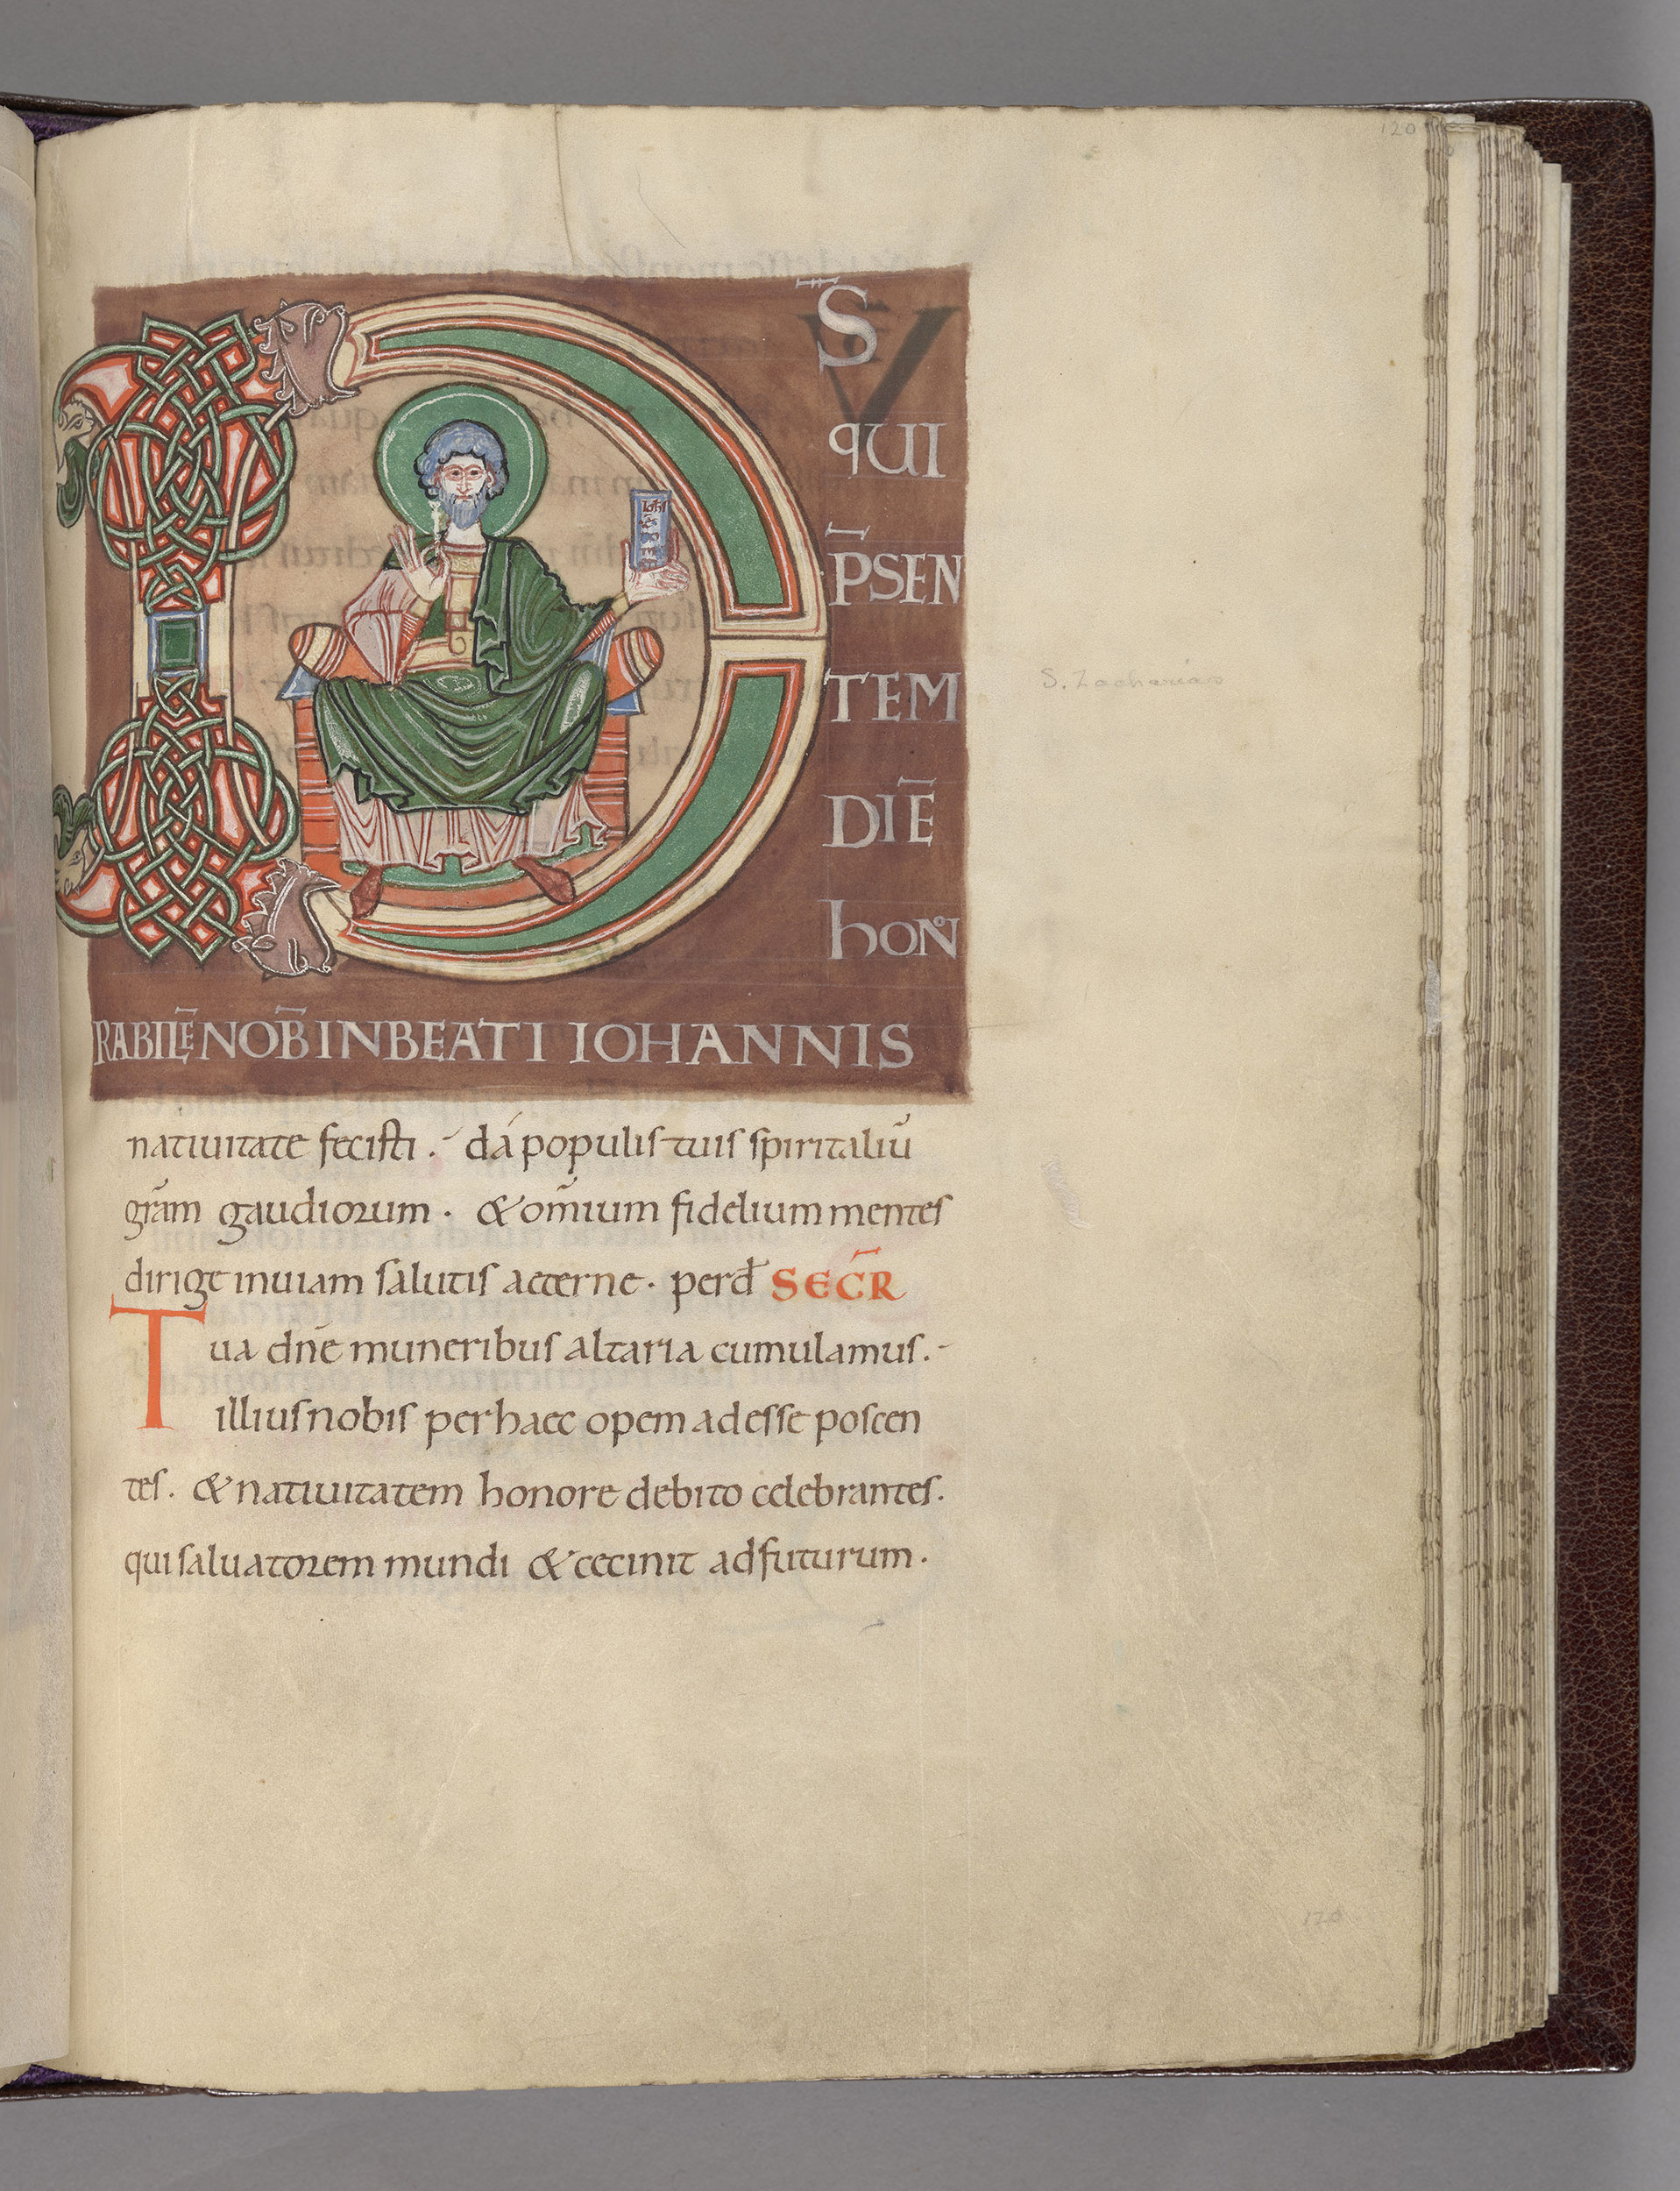 120
D S̄
QUI
P̄SEN
TEM
DIĒ
hON
RABILĒ NOB̄ IN BEATI IOHANNIS
Ioh
nativitate fecisti. dá populis tuis spiritaliū
grām gaudiorum. & om̄ium fidelium mentes
dirige in viam salutis aeterne. perd̄ SECR̄
Tua dn̄e muneribus altaria cumulamus.
illius nobis per haec opem adesse poscen
tes. & nativitatem honore debito celebrantes.
qui salvatorem mundi & cecinit adfuturum.
S. Zacharias
120